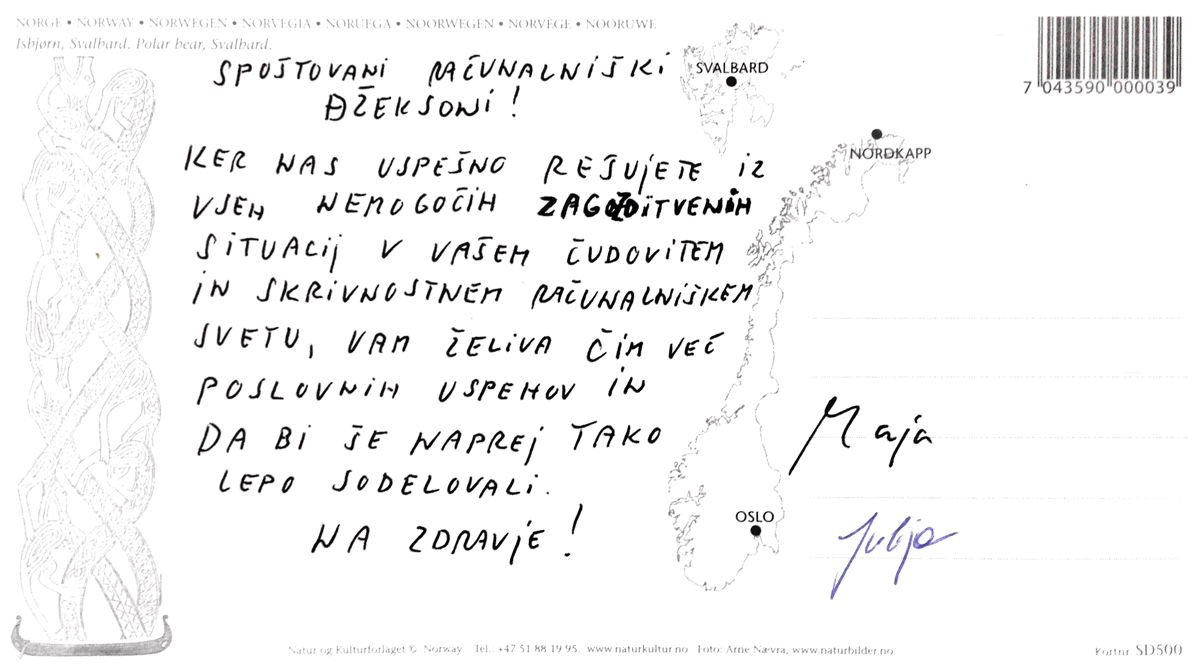 NORGE • NORWAY • NORWEGEN • NORVEGIA • NORUEGA • NOORWEGEN • NORVÈGE • NOORUWE
Isbjørn, Svalbard. Polar bear, Svalbard.
SPOŠTOVANI RAČUNALNIŠKI
DŽEKSONI!
KER NAS USPEŠNO REŠUJETE IZ
VSEH NEMOGOČIH ZAGOZDITVENIH
SITUACIJ V VAŠEM ČUDOVITEM
IN SKRIVNOSTNEM RAČUNALNIŠKEM
SVETU, VAM ŽELIVA ČIM VEČ
POSLOVNIH USPEHOV IN
DA BI ŠE NAPREJ TAKO
LEPO SODELOVALI.
NA ZDRAVJE!
SVALBARD
NORDKAPP
OSLO
7 043590 000039
Maja
Julija
Natur og Kulturforlaget © Norway. Tel.: +47 51 88 19 95 www.naturkultur.no Foto: Arne Nævra, www.naturbilder.no
Kortnr. SD500